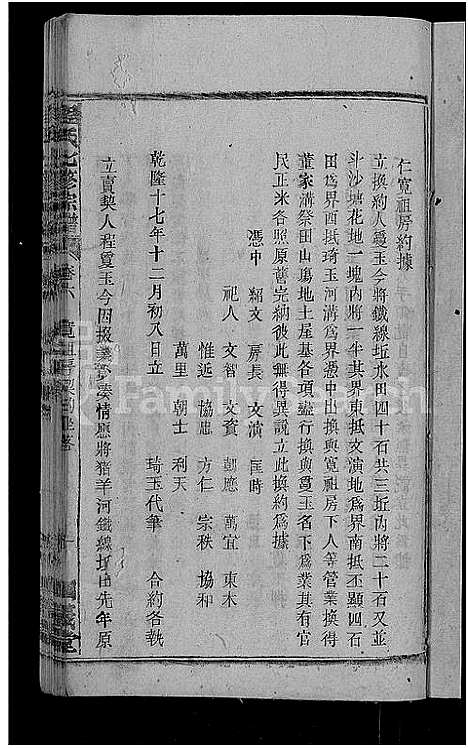 仁寬祖房約據
立換約人㝢玉今將鐵線坵水田四十石共三坵內將二十石又並
斗沙塘花地一塊內將一半其界東抵文演地爲界南抵丕顯四石
田爲界西抵琦玉河溝爲界憑中出換與寬祖房下人等管業換得
董家溝祭田山塲地土屋基各項盡行換與㝢玉名下爲業其有官
民正米各照原舊完納彼此無得異說立此換約爲據
憑中 紹文 房長 文演 匡時
祀人 文智 文資 朝應 萬宜 東木
惟近 協忠 方仁 宗秩 協和
萬里 朝士 利天
乾隆十七年十二月初八日立 琦玉代筆 合約各執
立賣契人程㝢玉今因拨業湊情應將猪羊河鐵線坵由先年原
程氏七修宗譜
卷六
FamilySearch